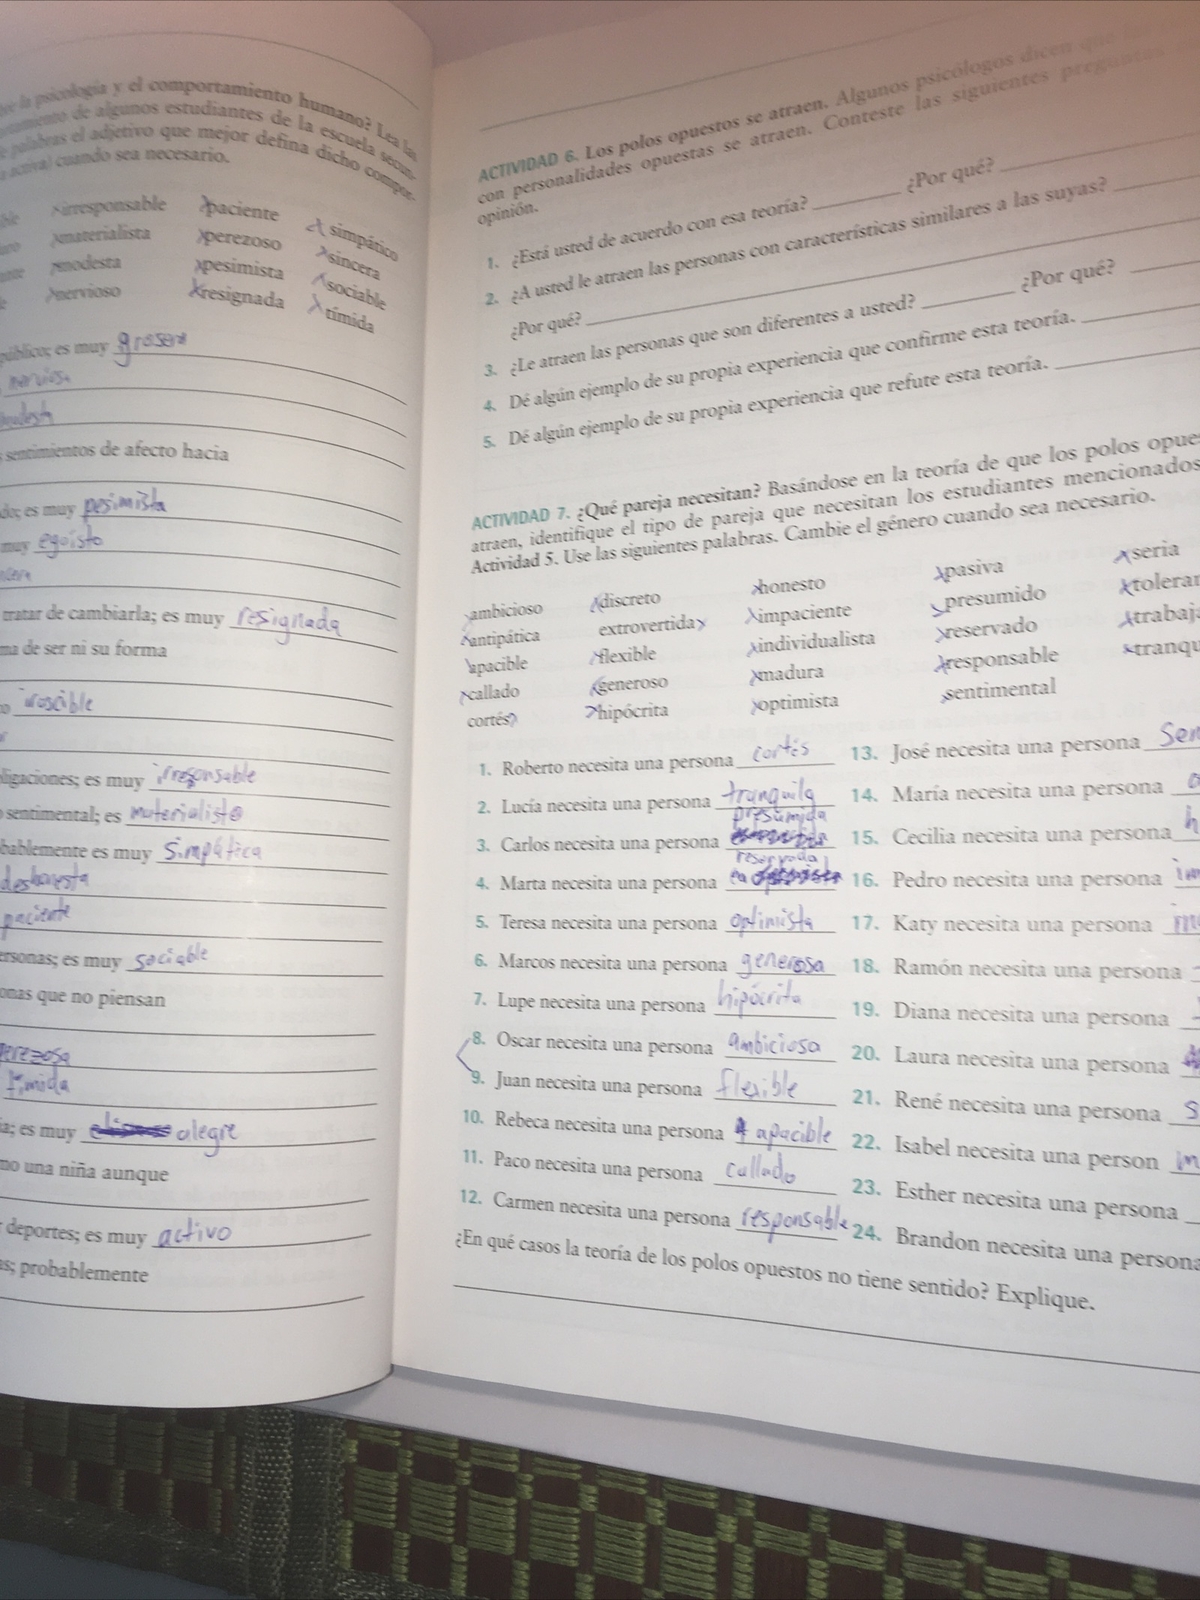 la psicología y el comportamiento humano? Lea la
de algunos estudiantes de la escuela secun-
palabras el adjetivo que mejor defina dicho compor-
activa) cuando sea necesario.
irresponsable paciente simpático
materialista perezoso sincera
modesta pesimista sociable
nervioso resignada tímida
público; es muy grosero
nerviosa
modesta
sentimientos de afecto hacia
es muy pesimista
muy egoísto
tratar de cambiarla; es muy resignada
de ser ni su forma
irascible
es muy irresponsable
sentimental; es materialist@
es muy simpática
deshonesta
paciente
es muy sociable
que no piensan
perezosa
tímida
es muy alegre
una niña aunque
deportes; es muy activo
probablemente
ACTIVIDAD 6. Los polos opuestos se atraen. Algunos psicólogos dicen que las
con personalidades opuestas se atraen. Conteste las siguientes preguntas
opinión.
1. ¿Está usted de acuerdo con esa teoría? ¿Por qué?
2. ¿A usted le atraen las personas con características similares a las suyas?
¿Por qué?
3. ¿Le atraen las personas que son diferentes a usted? ¿Por qué?
4. Dé algún ejemplo de su propia experiencia que confirme esta teoría.
5. Dé algún ejemplo de su propia experiencia que refute esta teoría.
ACTIVIDAD 7. ¿Qué pareja necesitan? Basándose en la teoría de que los polos opues
atraen, identifique el tipo de pareja que necesitan los estudiantes mencionados
Actividad 5. Use las siguientes palabras. Cambie el género cuando sea necesario.
ambicioso discreto honesto pasiva seria
antipática extrovertida impaciente presumido toleran
apacible flexible individualista reservado trabaj
callado generoso madura responsable tranqu
cortés hipócrita optimista sentimental
1. Roberto necesita una persona cortés
2. Lucía necesita una persona tranquila
3. Carlos necesita una persona presumida
4. Marta necesita una persona reservada
5. Teresa necesita una persona optimista
6. Marcos necesita una persona generosa
7. Lupe necesita una persona hipócrita
8. Oscar necesita una persona ambiciosa
9. Juan necesita una persona flexible
10. Rebeca necesita una persona apacible
11. Paco necesita una persona callado
12. Carmen necesita una persona responsable
13. José necesita una persona Sen
14. María necesita una persona
15. Cecilia necesita una persona h
16. Pedro necesita una persona im
17. Katy necesita una persona
18. Ramón necesita una persona
19. Diana necesita una persona
20. Laura necesita una persona
21. René necesita una persona s
22. Isabel necesita una person m
23. Esther necesita una persona
24. Brandon necesita una persona
¿En qué casos la teoría de los polos opuestos no tiene sentido? Explique.